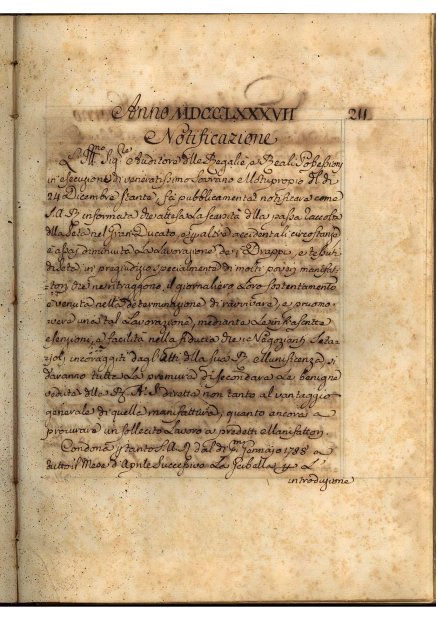 Anno MDCCLXXXVII 211
Notificazione
L' Ill.mo Sig.re Auditore delle Regalie, e Reali Possessioni
in esecuzione di veneratissimo Sovrano Motuproprio del dì
24 Dicembre stante, fà pubblicamente notificare come
S.A.R. informata che attesa la scarsità della passata raccolta
della Seta nel Gran-Ducato, e
è assai diminuita la Lavorazione dei Drappi, e tessuti
di Seta in pregiudizio specialmente di molti poveri manifat-
tori che ne ritraggono il giornaliero loro sostentamento
è venuta nella determinazione di ravvivare, e promo-
vere una tal Lavorazione, mediante le infrascritte
esenzioni, e facilità nella fiducia che i Negozianti Seta-
joli, incoraggiti dagli atti della sua R. Munificenza si
daranno tutta la premura di secondare le benigne
vedute della R. A. S. dirette non tanto al vantaggio
generale di quelle manifatture, quanto ancora a
procurare un sollecito Lavoro a predetti Manifattori.
Condona pertanto S.A.R. dal dì p.mo Gennajo 1788 a
tutto il Mese d'Aprile successivo la Gabella per l'
introduzione